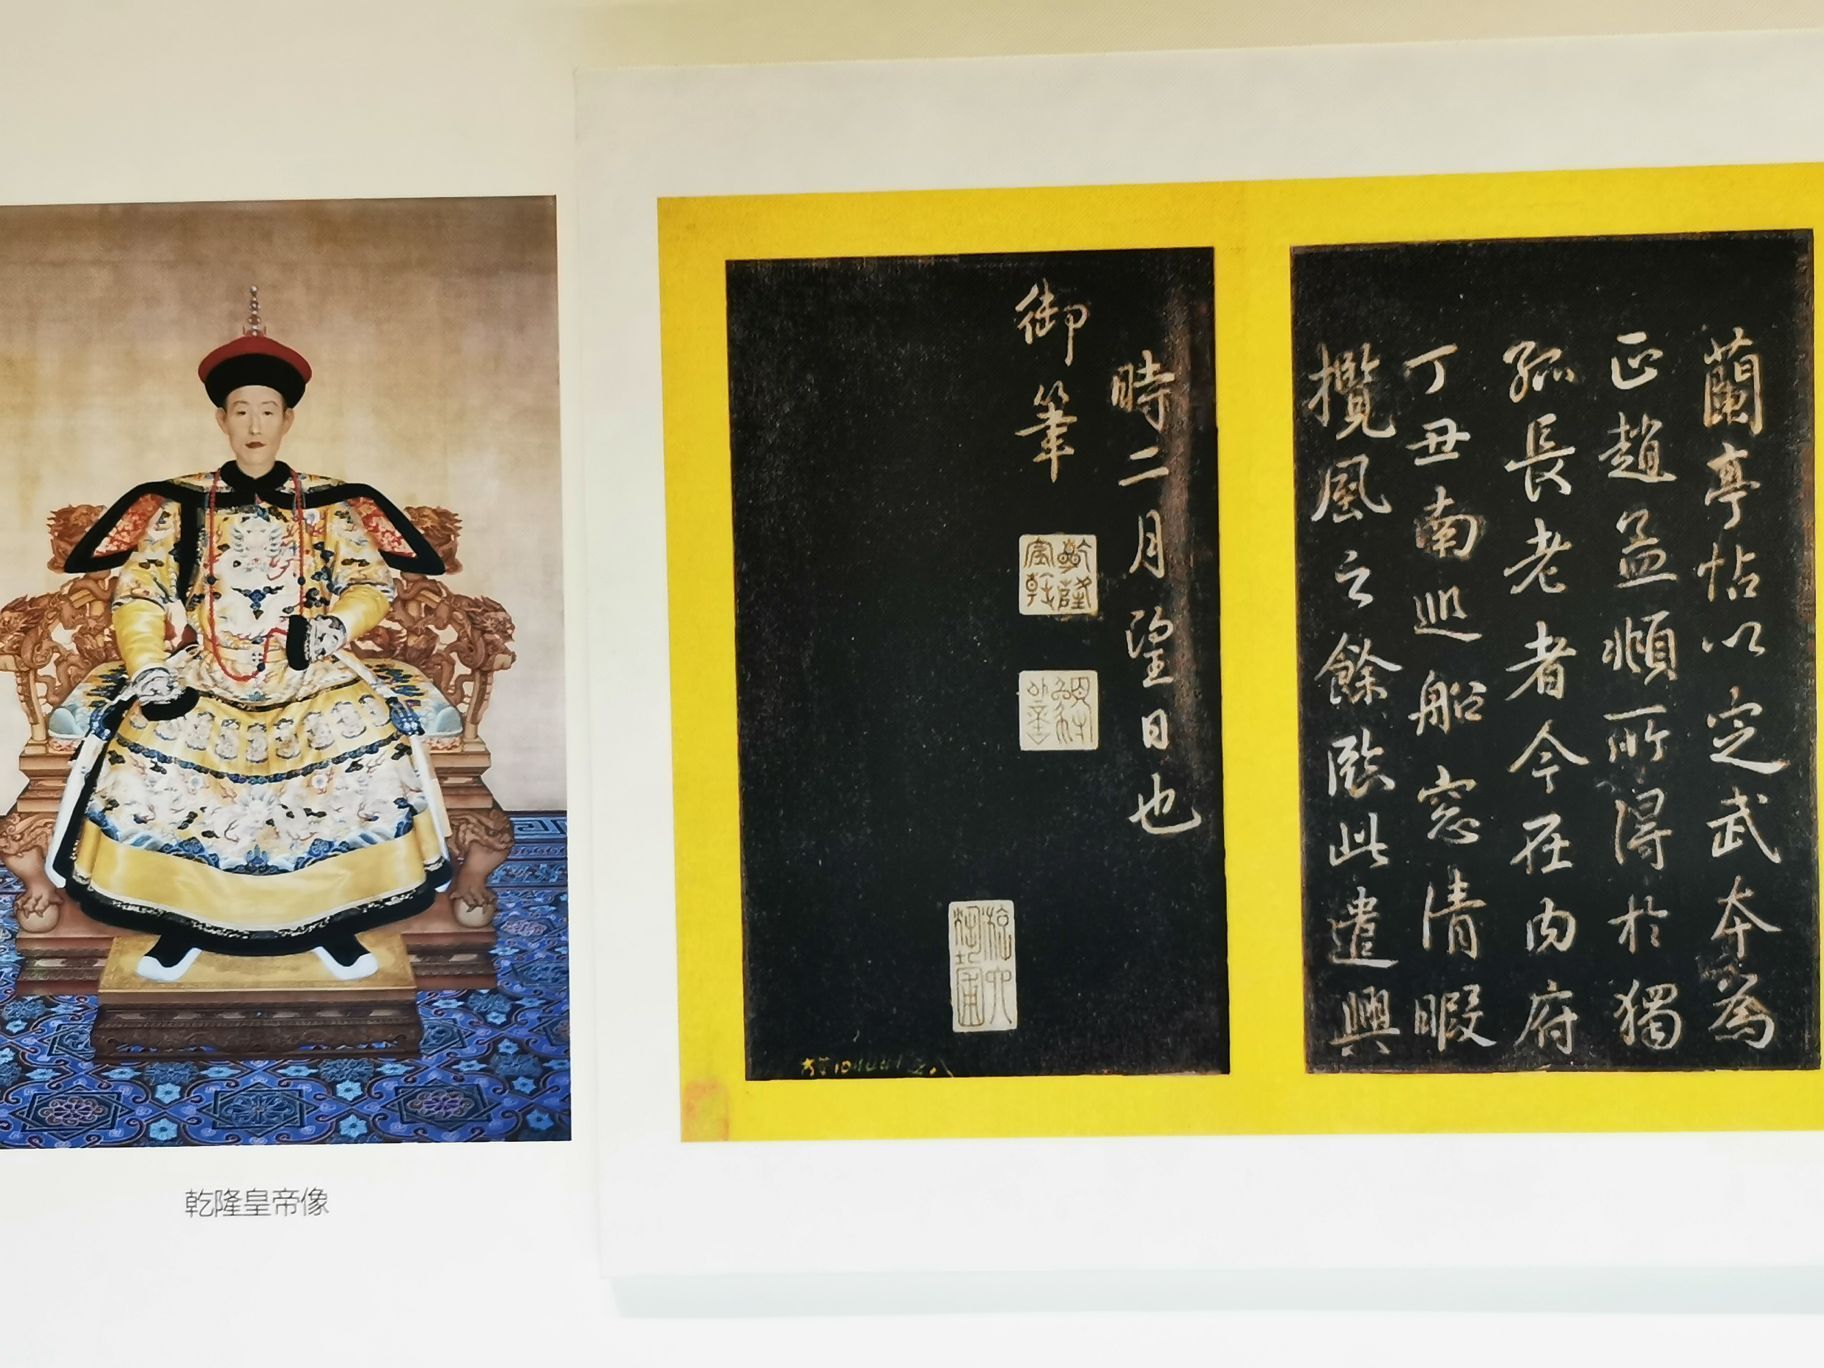 蘭亭帖以定武本為
正趙孟頫所得於獨
孤長老者今在内府
丁丑南巡船窓清暇
攬風之餘臨此遣興
時二月望日也
御筆
乾隆皇帝像